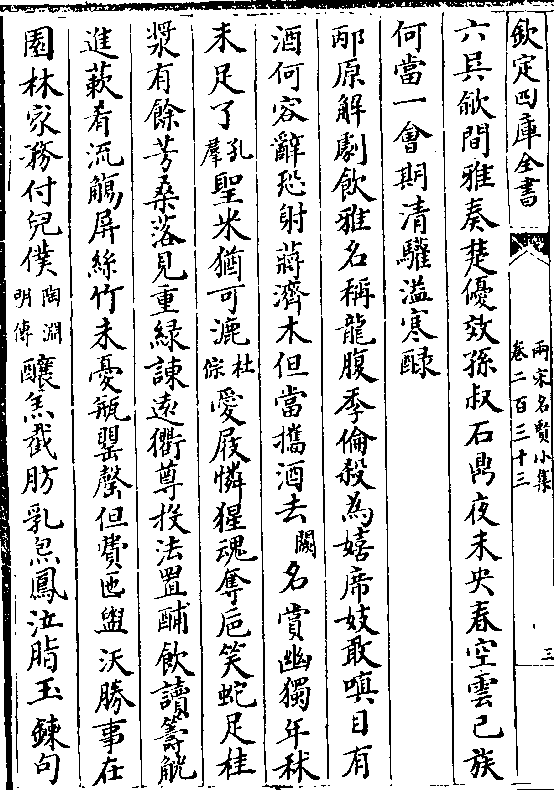 欽定四庫全書
兩宋名賢小集
卷二百三十三
三
六具斂間雅奏楚優效孫叔石鼎夜未央春空雲已族
何當一會期清驩溢寒醁
邴原解劇飲雅名稱龍腹季倫殺為嬉席妓敢嗔目有
酒何容辭恐射蔣濟木但當攜酒去闕名賞幽獨年秫
未足了孔羣聖米猶可漉杜倧愛屐憐猩魂奪巵笑蛇足桂
漿有餘芳桑落見重緑諫遠衢尊投法置酺飲讀籌觥
進蔌肴流觴屏絲竹未憂瓶罌罄但費匜盥沃勝事在
園林家務付兒僕陶淵明傳釀羔截肪乳炰鳳泣脂玉鍊句